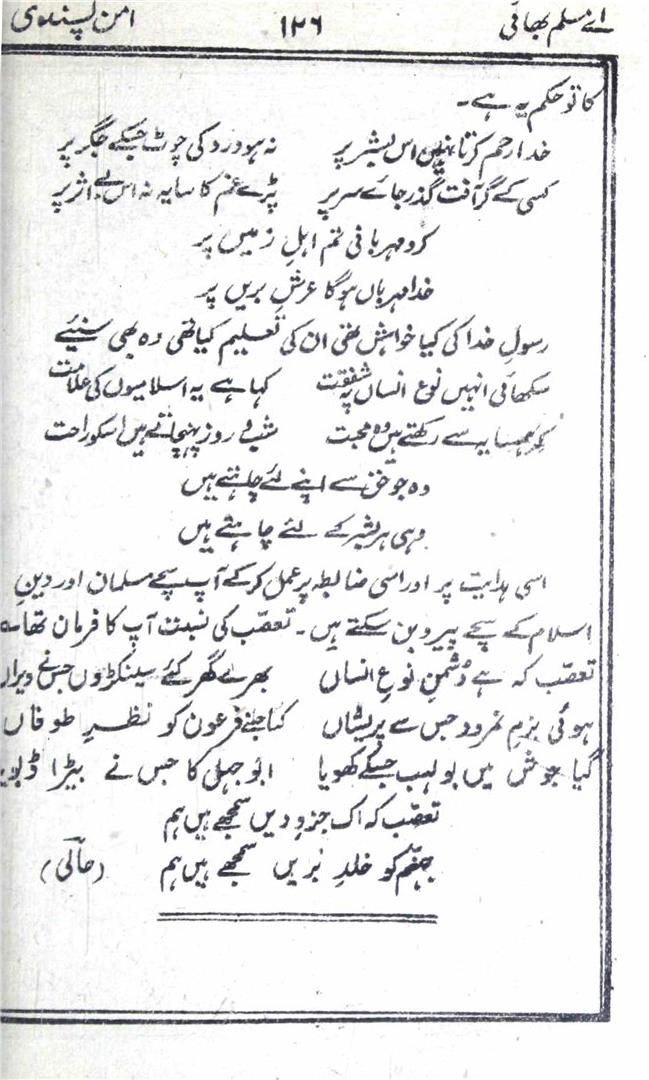 اے مسلم بھائی ۱۲۶ امن پسندوی
کا تو حکم یہ ہے۔
خدا رحم کرتا نہیں اس بشر پر نہ ہو درد کی چوٹ جسکے جگر پر
کسی کے گر آفت گذر جائے سر پر پڑے غم کا سایہ نہ اس بے اثر پر
کرو مہربانی تم اہلِ زمیں پر
خدا مہرباں ہوگا عرشِ بریں پر
رسولِ خدا کی کیا خواہش تھی ان کی تعلیم کیا تھی وہ بھی سنیئے
سکھائی انہیں نوع انساں پہ شفقت کہا ہے یہ اسلامیوں کی علامت
کہ ہمسایہ سے رکھتے ہیں وہ محبت شب و روز پہنچاتے ہیں اسکو راحت
وہ جو حق سے اپنے لئے چاہتے ہیں
وہی ہر بشر کے لئے چاہتے ہیں
اسی ہدایت پر اور اسی ضابطہ پر عمل کر کے آپ سچے مسلمان اور دینِ
اسلام کے سچے پیرو بن سکتے ہیں۔ تعصّب کی نسبت آپ کا فرمان تھا ؎
تعصّب کہ ہے دُشمنِ نوعِ انساں بھرے گھر کئے سینکڑوں جس نے ویراں
ہوئی بزمِ نمرود جس سے پریشاں کیا جسنے فرعون کو نظرِ طوفاں
گیا جوش میں بولہب جسکے کھویا ابوجہل کا جس نے بیڑا ڈبویا
تعصّب کہ اک جزوِ دیں سمجھے ہیں ہم
جہنّم کو خلدِ بریں سمجھے ہیں ہم (حالیؔ)